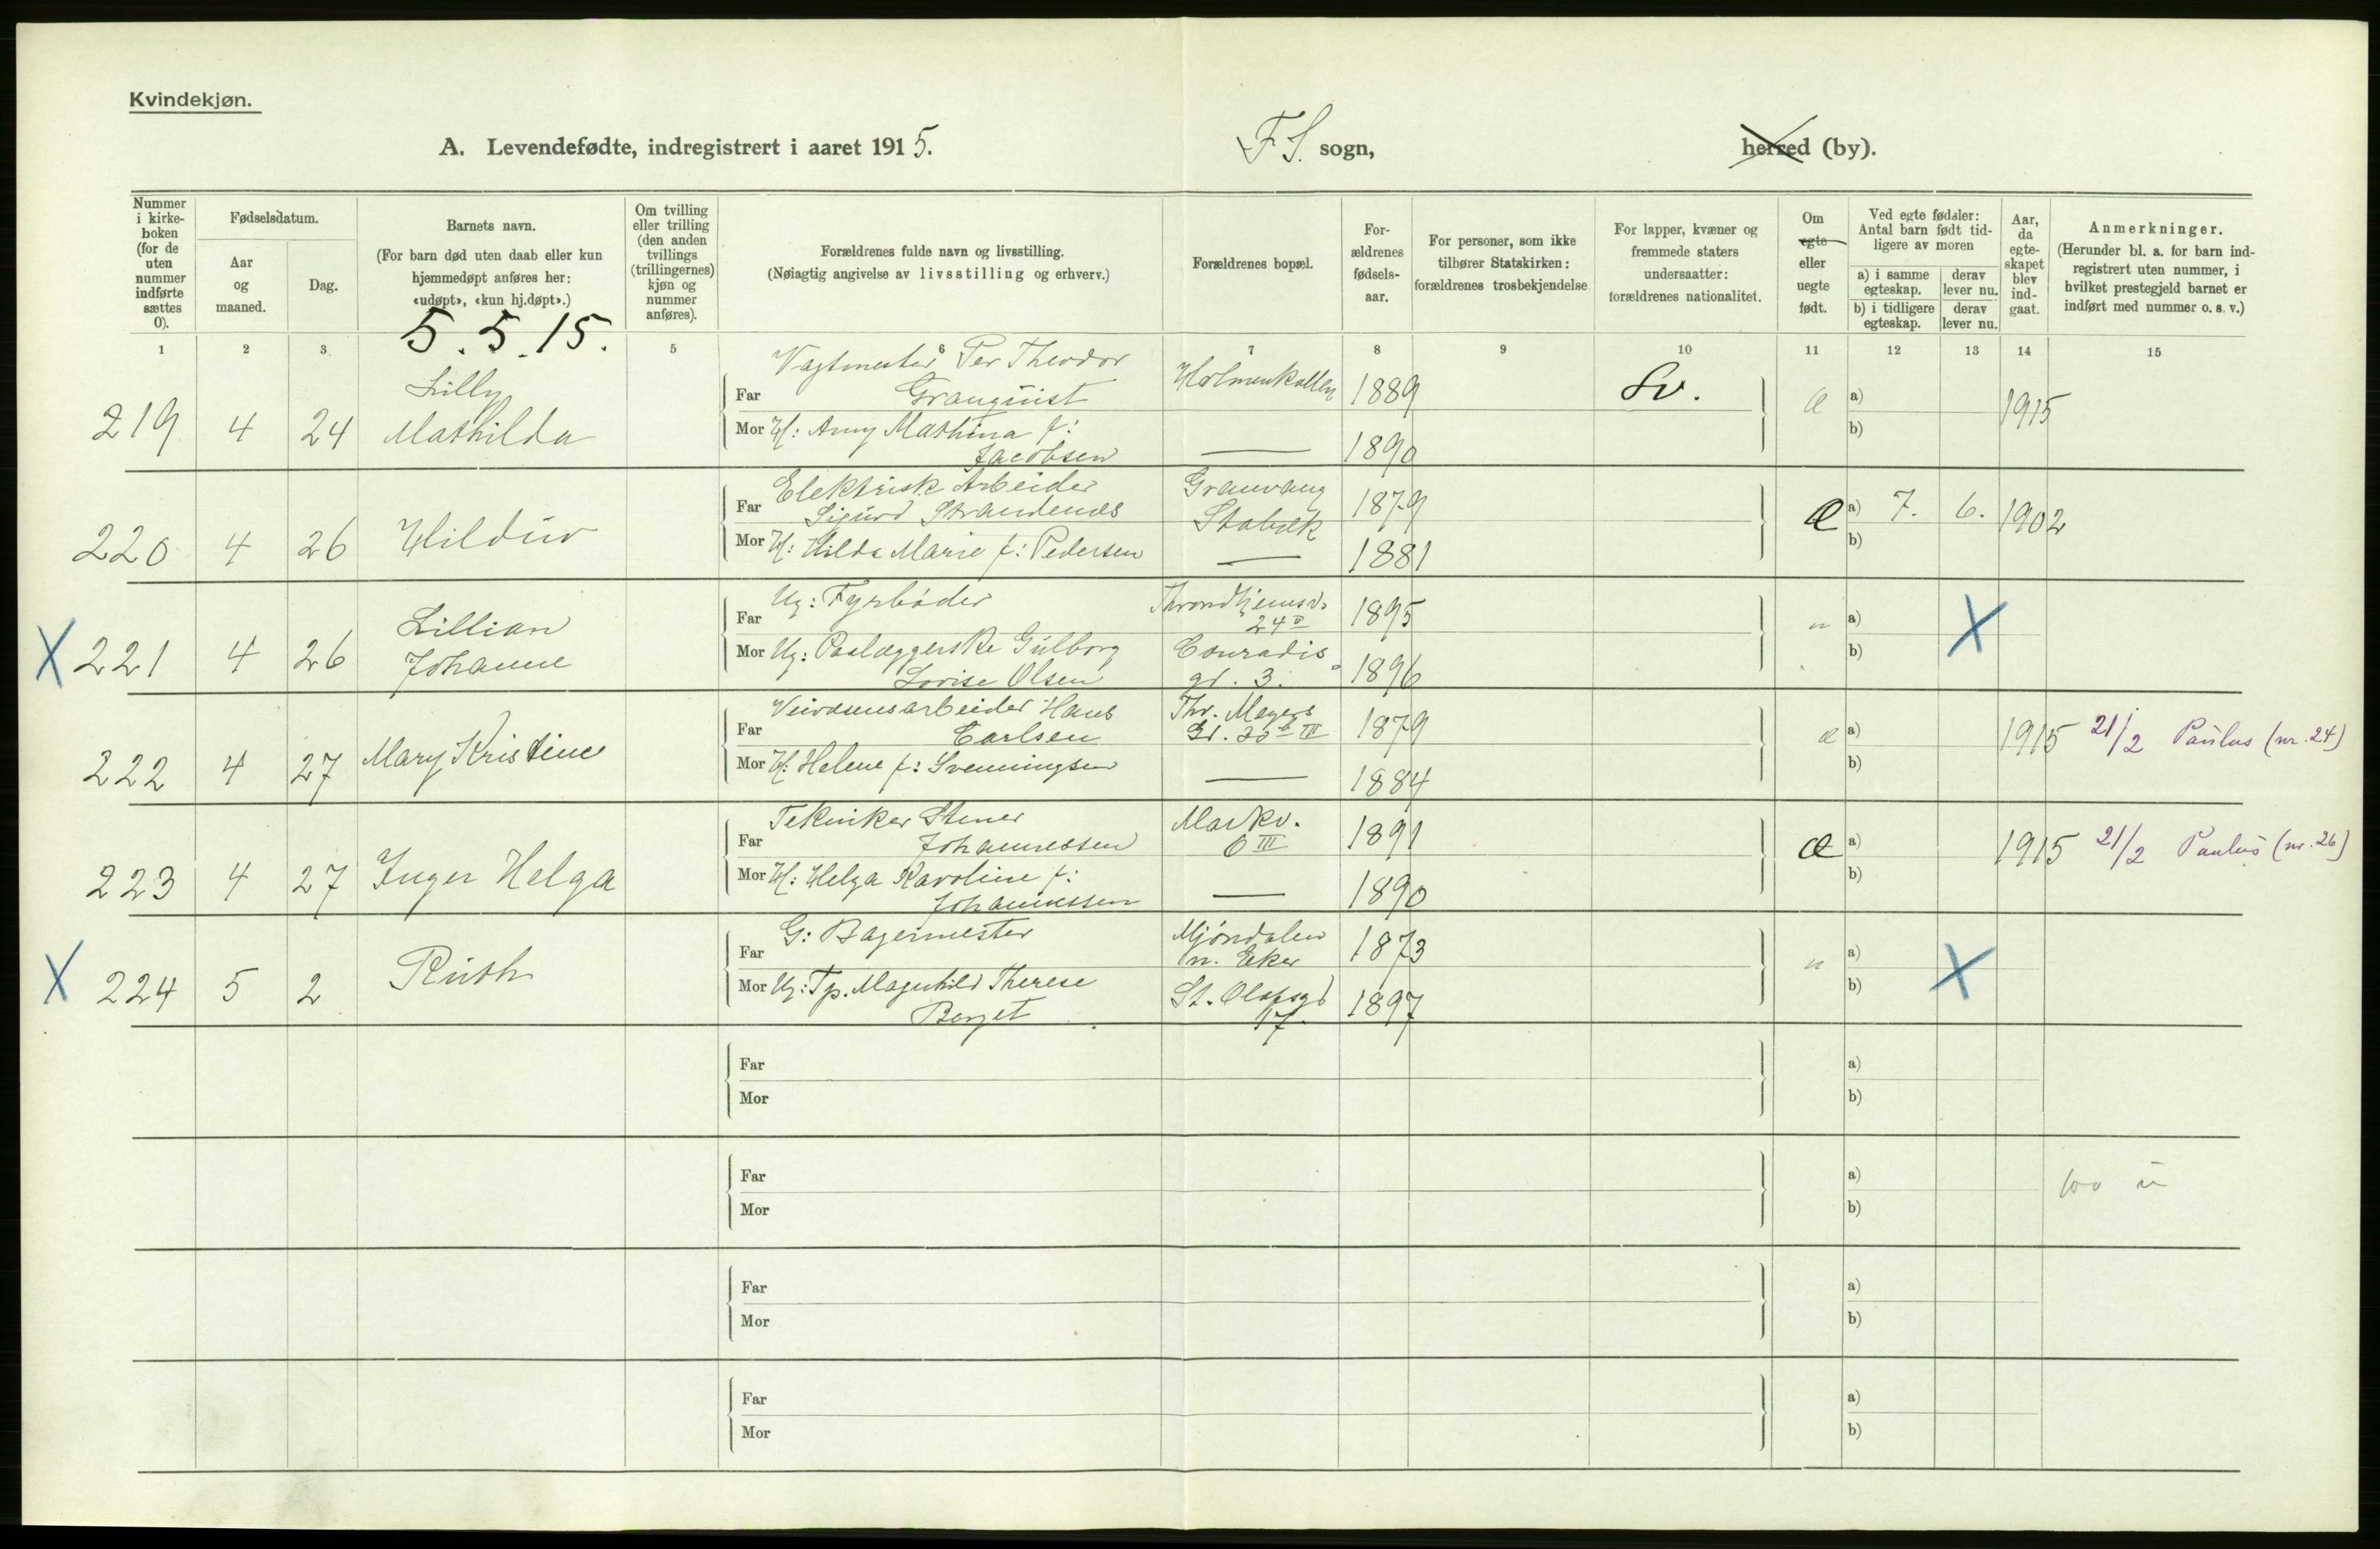 Kvindekjøn.
A. Levendefødte, indregistrert i aaret 1915.
F. S. sogn,
herred (by).
Nummer i kirke-boken (for de uten nummer indførte sættes 0).
Fødselsdatum.
Aar og maaned.
Dag.
Barnets navn.
(For barn død uten daab eller kun hjemmedøpt anføres her: «udøpt», «kun hj.døpt».)
Om tvilling eller trilling (den anden tvillings (trillingernes) kjøn og nummer anføres).
Forældrenes fulde navn og livsstilling.
(Nøiagtig angivelse av livsstilling og erhverv.)
Forældrenes bopæl.
For-ældrenes fødsels-aar.
For personer, som ikke tilhører Statskirken: forældrenes trosbekjendelse
For lapper, kvæner og fremmede staters undersaatter: forældrenes nationalitet.
Om egte eller uegte født.
Ved egte fødsler: Antal barn født tid-ligere av moren
a) i samme egteskap.
derav lever nu.
b) i tidligere egteskap.
derav lever nu.
Aar, da egte-skapet blev ind-gaat.
Anmerkninger.
(Herunder bl. a. for barn ind-registrert uten nummer, i hvilket prestegjeld barnet er indført med nummer o. s. v.)
5.5.15.
1 2 3 5 6 7 8 9 10 11 12 13 14 15
219 4 24 Lilly Mathilda
Far Vagtmester Per Theodor Granquist Holmenkollen 1889 Sv. Æ a) 1915
Mor H: Anny Mathina f: Jacobsen — 1890 b)
220 4 26 Hildur
Far Elektrisk Arbeider Sigurd Strandenæs Granvang Stabæk 1879 Æ a) 7. 6. 1902
Mor H: Hilda Marie f: Pedersen — 1881 b)
X 221 4 26 Lillian Johanne
Far Ug: Fyrbøder Throndhjemsv. 24 II 1895 u a) X
Mor Ug: Paalæggerske Gulborg Lovise Olsen Conradis gd. 3. 1896 b)
222 4 27 Mary Kristine
Far Veivæsensarbeider Hans Carlsen Thv. Meyers Gd. III 1879 æ a) 1915 21/2 Paulus (nr. 24)
Mor H: Helene f: Svenningsen — 1884 b)
223 4 27 Inger Helga
Far Tekniker Stener Johannessen Markv. 6 III 1891 Æ a) 1915 21/2 Paulus (nr. 26)
Mor H: Helga Karoline f: Johannessen — 1890 b)
X 224 5 2 Ruth
Far G: Bagermester Mjøndalen n. Eker 1873 u a) X
Mor Ug: Tp. Magnhild Therese Berget St. Olafsgd 17. 1897 b)
Far a)
Mor b)
Far a)
Mor b)
Far a)
Mor b)
Far a)
Mor b)